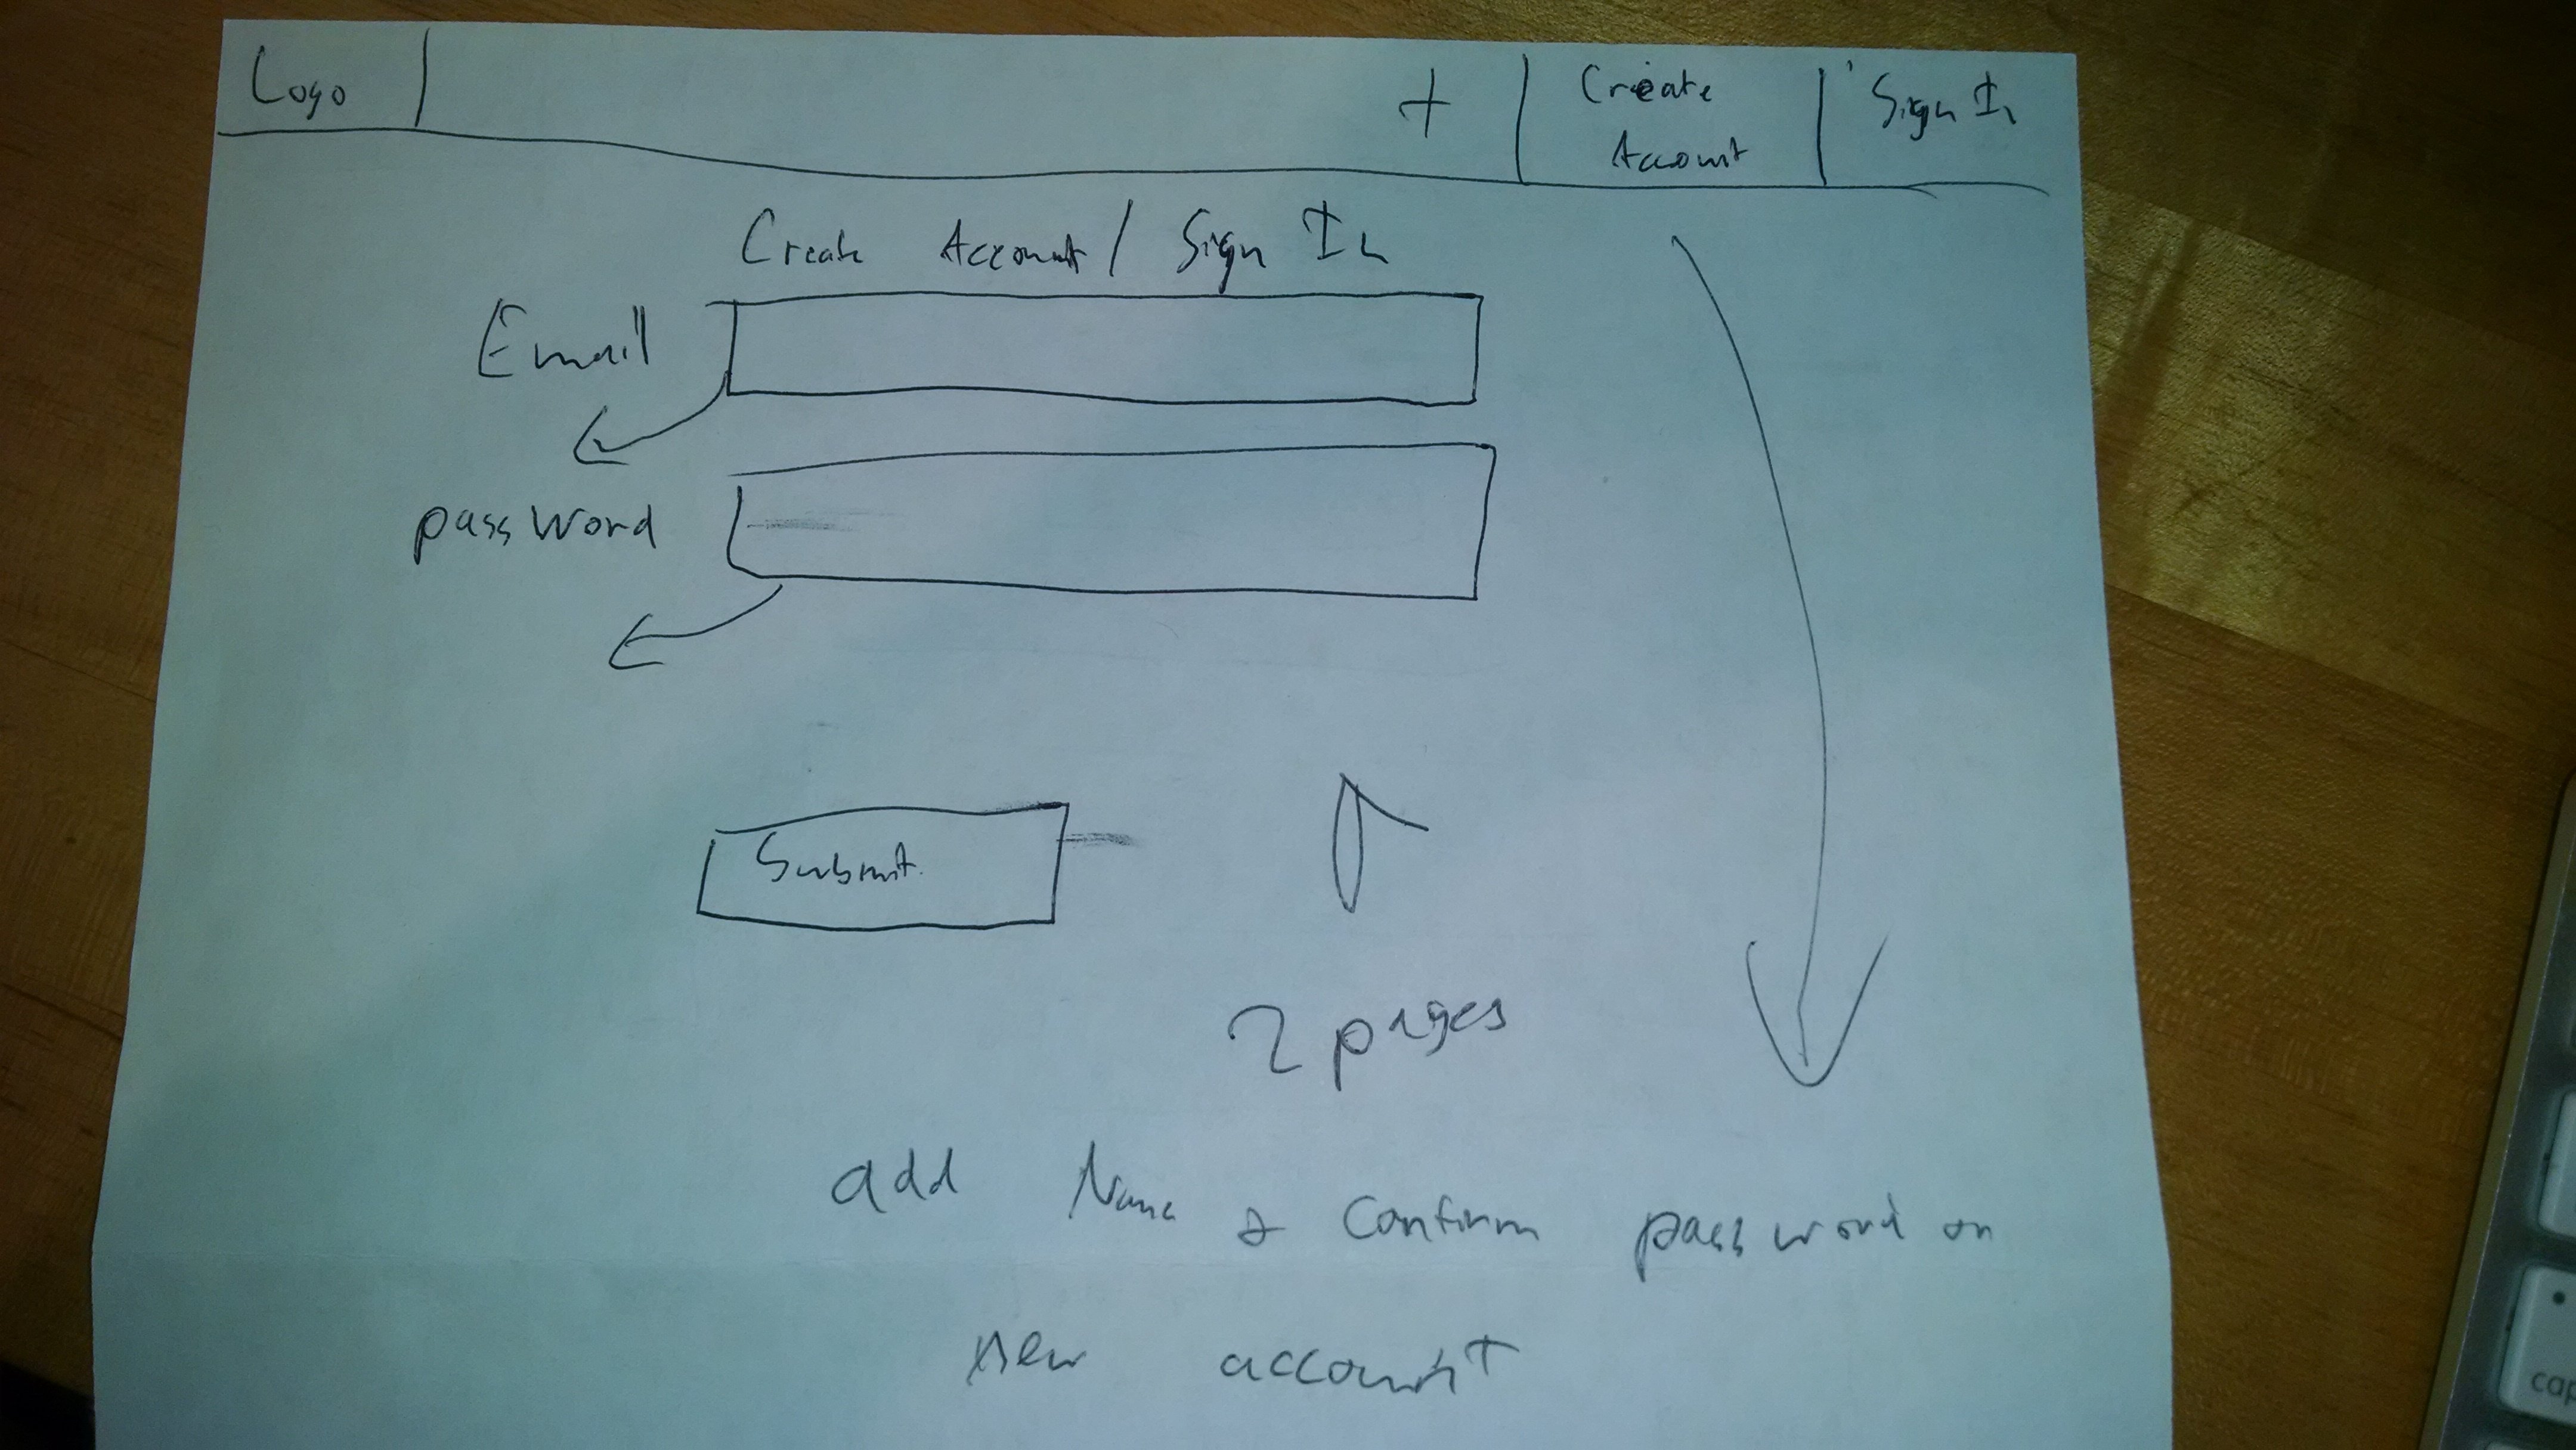 Logo
+
Create
Account
Sign In
Create Account / Sign In
Email
password
Submit
2 pages
add Name & Confirm password on
new account
cap